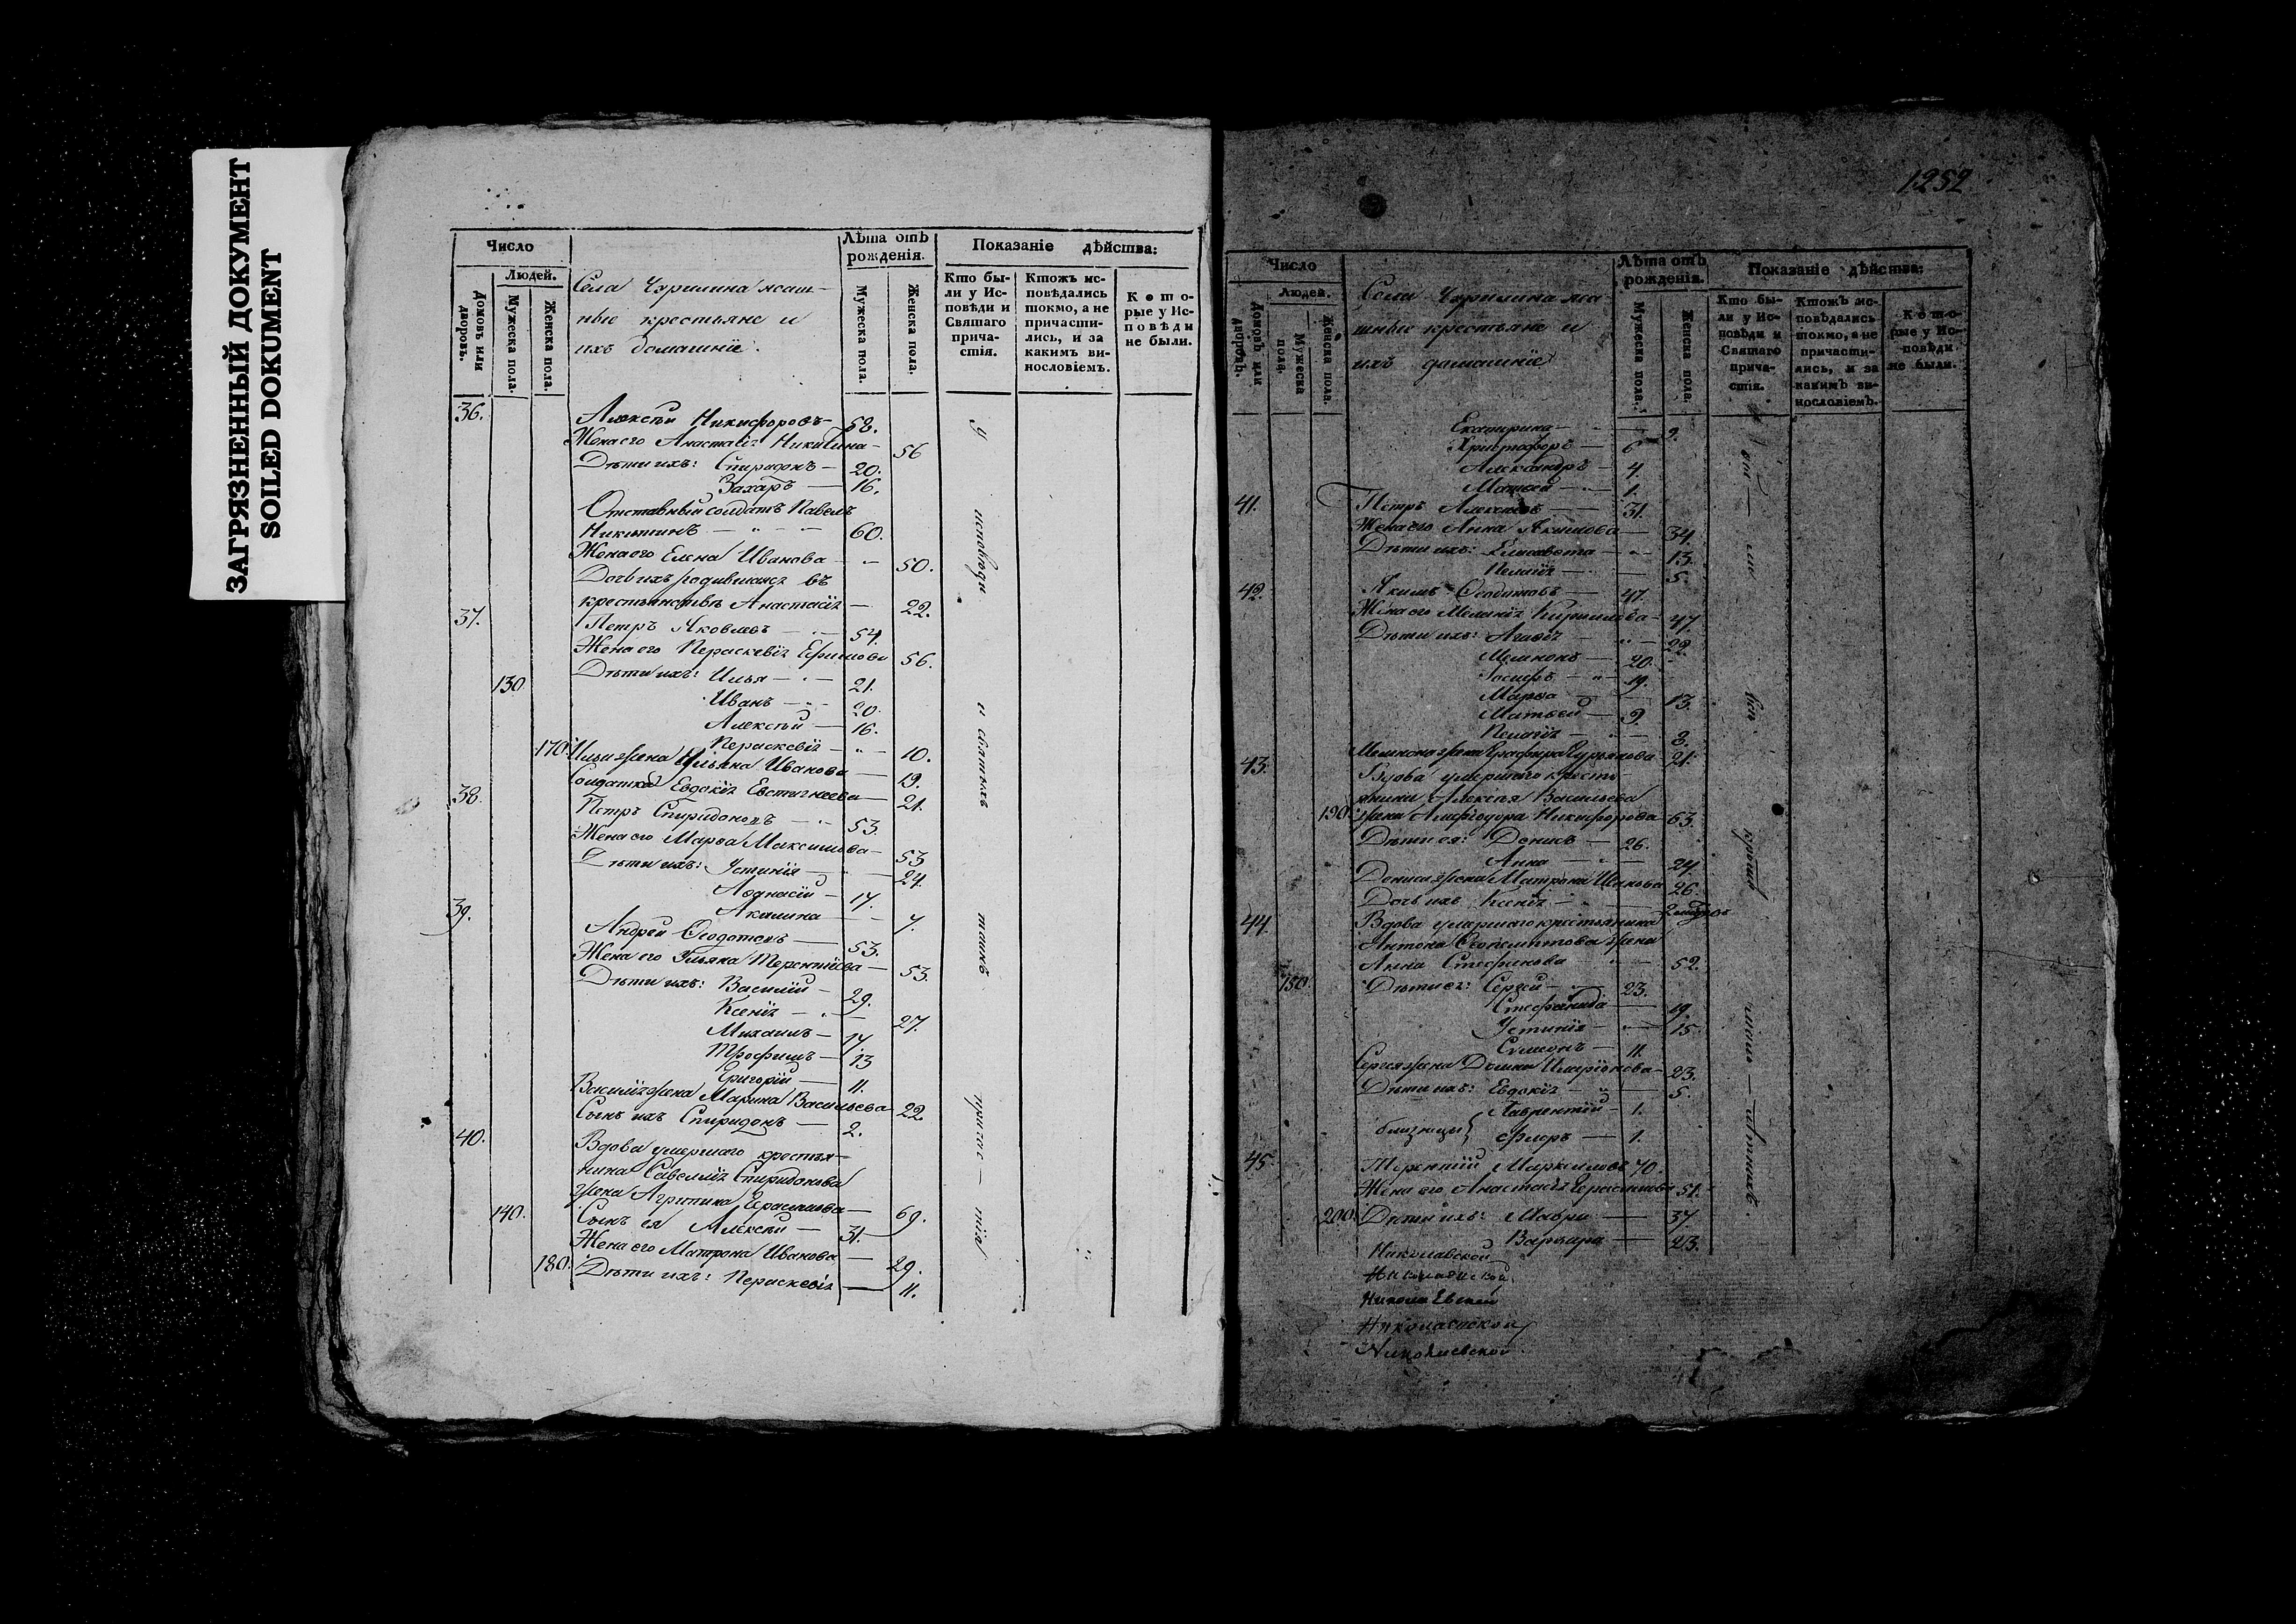 ЗАГРЯЗНЕННЫЙ ДОКУМЕНТ
SOILED DOKUMENT
Число
Людей.
Домовъ или дворовъ.
Мужеска пола.
Женска пола.
Села Чурилина ясаш-
ные крестьяне и
ихъ домашніе.
Лѣта отъ рожденія.
Мужеска пола.
Женска пола.
Показаніе дѣйства:
Кто бы-
ли у Ис-
повѣди и
Святаго
прича-
стія.
Ктожъ ис-
повѣдались
токмо, а не
причасти-
лись, и за
какимъ ви-
нословіемъ.
Кото-
рые у Ис-
повѣди
не были.
36. Алексѣй Никифоровъ — 58.
Жена его Анастасія Никитина — 56
Дѣти ихъ: Спиридонъ — 20.
Захаръ — 16.
Отставный солдатъ Павелъ
Никитинъ — 60.
Жена его Елена Иванова — 50.
Дочь ихъ родившаяся въ
крестьянствѣ Анастасія — 22.
37. Петръ Яковлевъ — 54.
Жена его Пераскевія Ефимова 56.
130 Дѣти ихъ: Илья — 21.
Иванъ — 20.
Алексѣй — 16.
170 Пераскевія — 10.
Ильи жена Ульяна Иванова — 19.
Солдатка Евдокія Евстигнеева — 21.
38. Петръ Спиридоновъ — 53.
Жена его Марѳа Максимова — 53
Дѣти ихъ: Устинія — 24.
Аѳанасій — 17.
Акилина — 7.
39. Андрей Ѳедотовъ — 53.
Жена его Ульяна Терентіева — 53.
Дѣти ихъ: Василій — 29.
Ксенія — 27.
Михаилъ — 17.
Трофимъ — 13
Григорій — 11.
Василія жена Марина Васильева 22
Сынъ ихъ Спиридонъ — 2.
40. Вдова умершаго крестья-
нина Савелія Спиридонова
жена Агрипина Герасимова — 69.
140. Сынъ ея Алексѣй — 31.
Жена его Матрона Иванова — 29.
180. Дѣти ихъ: Пераскевія — 11.
у исповѣди и святыхъ таинъ причас-тія
1252
Число
Людей.
Домовъ или дворовъ.
Мужеска пола.
Женска пола.
Села Чурилина яса-
шные крестьяне и
ихъ домашніе
Лѣта отъ рожденія.
Мужеска пола.
Женска пола.
Показаніе дѣйства:
Кто бы-
ли у Ис-
повѣди и
Святаго
прича-
стія.
Ктожъ ис-
повѣдались
токмо, а не
причасти-
лись, и за
какимъ ви-
нословіемъ.
Кото-
рые у Ис-
повѣди
не были.
Екатерина — 9.
Христофоръ — 6
Александръ — 4.
Матвей — 1.
41. Петръ Алексѣевъ — 31.
Жена его Анна Акимова — 34.
Дѣти ихъ: Елисавета — 13.
Пелагія — 5.
42. Якимъ Ѳедотовъ — 47.
Жена его Меланія Кирилова — 47.
Дѣти ихъ: Агаѳія — 22.
Мемнонъ — 20.
Іосифъ — 19.
Марѳа — 13.
Матвей — 9.
Пелагія — 3.
Мемнона жена Глафира Гурьянова 21.
43. Вдова умершаго кресть-
янина Алексѣя Васильева
190 жена Никифорова 63.
Дѣти ея: Денисъ — 26.
Анна — 24.
Дениса жена Матрона Иванова 26.
Дочь ихъ Ксенія —
44. Вдова умершаго крестьянина
Антона жена
Анна Стефанова 52.
150. Дѣти ея: Сергей — 23.
Стефанида — 19.
Устинія — 15.
Симеонъ — 11.
Сергея жена Домна Иларіонова — 23.
Дѣти ихъ: Евдокія — 5.
близнецы } Лаврентій — 1.
Флоръ — 1.
45. Терентій Маркеловъ 70.
Жена его Анастасія Герасимова 51.
200. Дѣти ихъ: Мавра — 37
Варвара — 23.
были вси кромѣ мало-лѣтнихъ.
Николавской
Николаевской
Николаевской
Николаевской
Николаевской